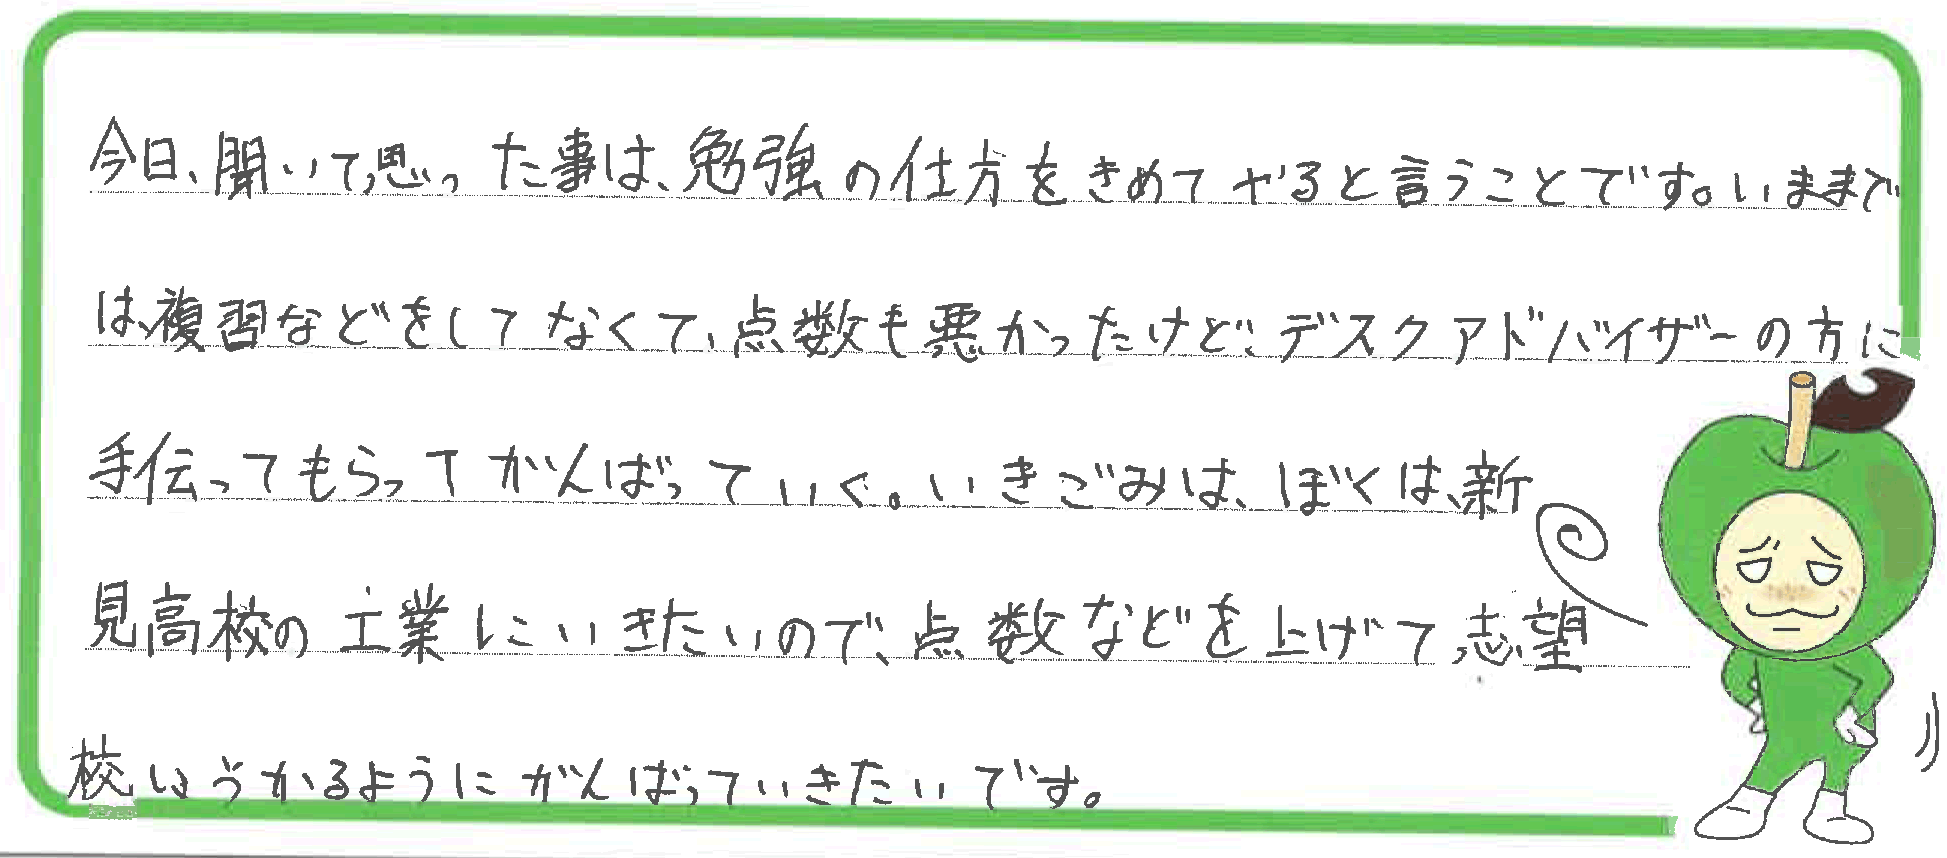 今日、聞いて思った事は、勉強の仕方をきめてやると言うことです。いままで
は、複習などをしてなくて、点数も悪かったけど、デスクアドバイザーの方に
手伝ってもらってがんばっていく。いきごみは、ぼくは、新
見高校の工業にいきたいので、点数などを上げて志望
校いうかるようにがんばっていきたいです。